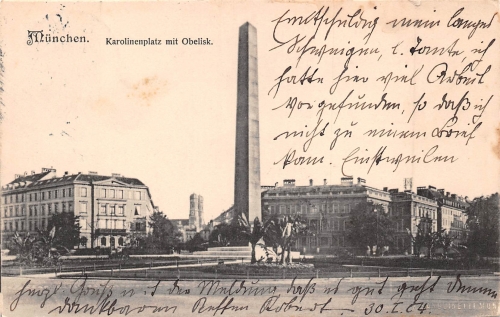 München.
Karolinenplatz mit Obelisk.
Entschuldig mein langes
Schweigen, l. Tante ich
hatte hier viel Arbeit
vorgefunden, so daß ich
nicht zu einem Brief
kam. Einstweilen
herzl. Grüße u. die Meldung daß es gut geht Deinem
dankbaren Neffen Robert. 30. I. 04.